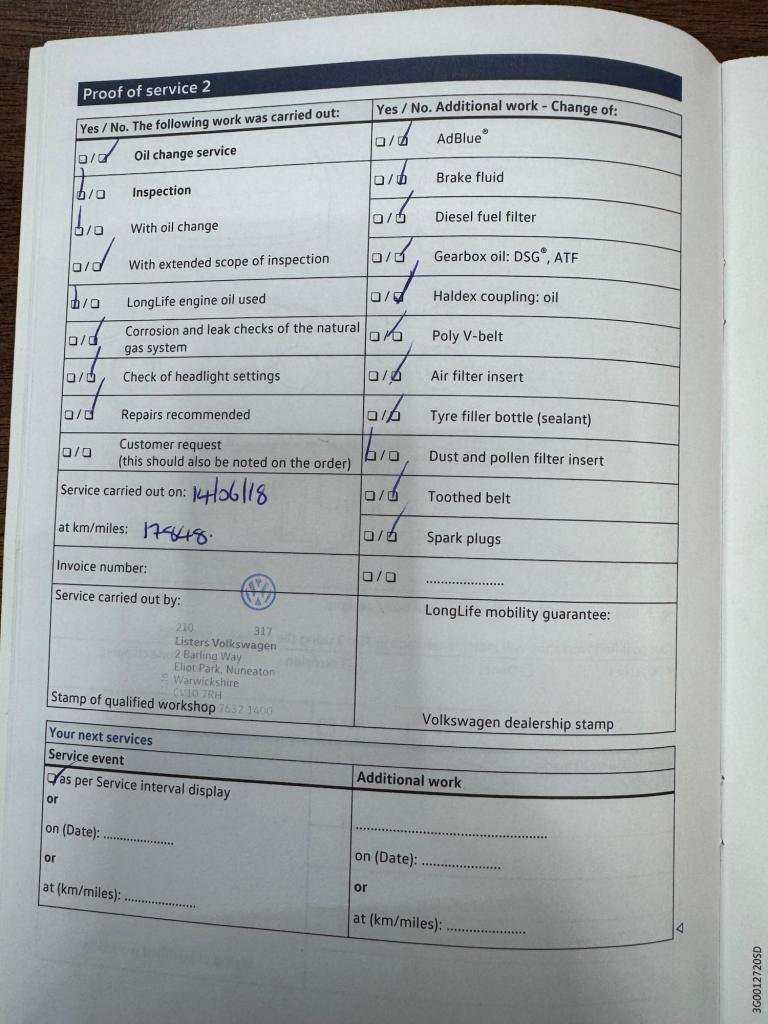 Proof of service 2
Yes / No. The following work was carried out:
Oil change service
Inspection
With oil change
With extended scope of inspection
LongLife engine oil used
Corrosion and leak checks of the natural
gas system
Check of headlight settings
Repairs recommended
Customer request
(this should also be noted on the order)
Service carried out on: 14/06/18
at km/miles: 17848.
Invoice number:
Service carried out by:
210 317
Listers Volkswagen
2 Barling Way
Eliot Park, Nuneaton
Warwickshire
CV10 7RH
7632 1400
Stamp of qualified workshop
Yes / No. Additional work - Change of:
AdBlue®
Brake fluid
Diesel fuel filter
Gearbox oil: DSG®, ATF
Haldex coupling: oil
Poly V-belt
Air filter insert
Tyre filler bottle (sealant)
Dust and pollen filter insert
Toothed belt
Spark plugs
LongLife mobility guarantee:
Volkswagen dealership stamp
Your next services
Service event
as per Service interval display
or
on (Date): ....................
or
at (km/miles): ....................
Additional work
on (Date): ....................
or
at (km/miles): ....................
3G0012720SD